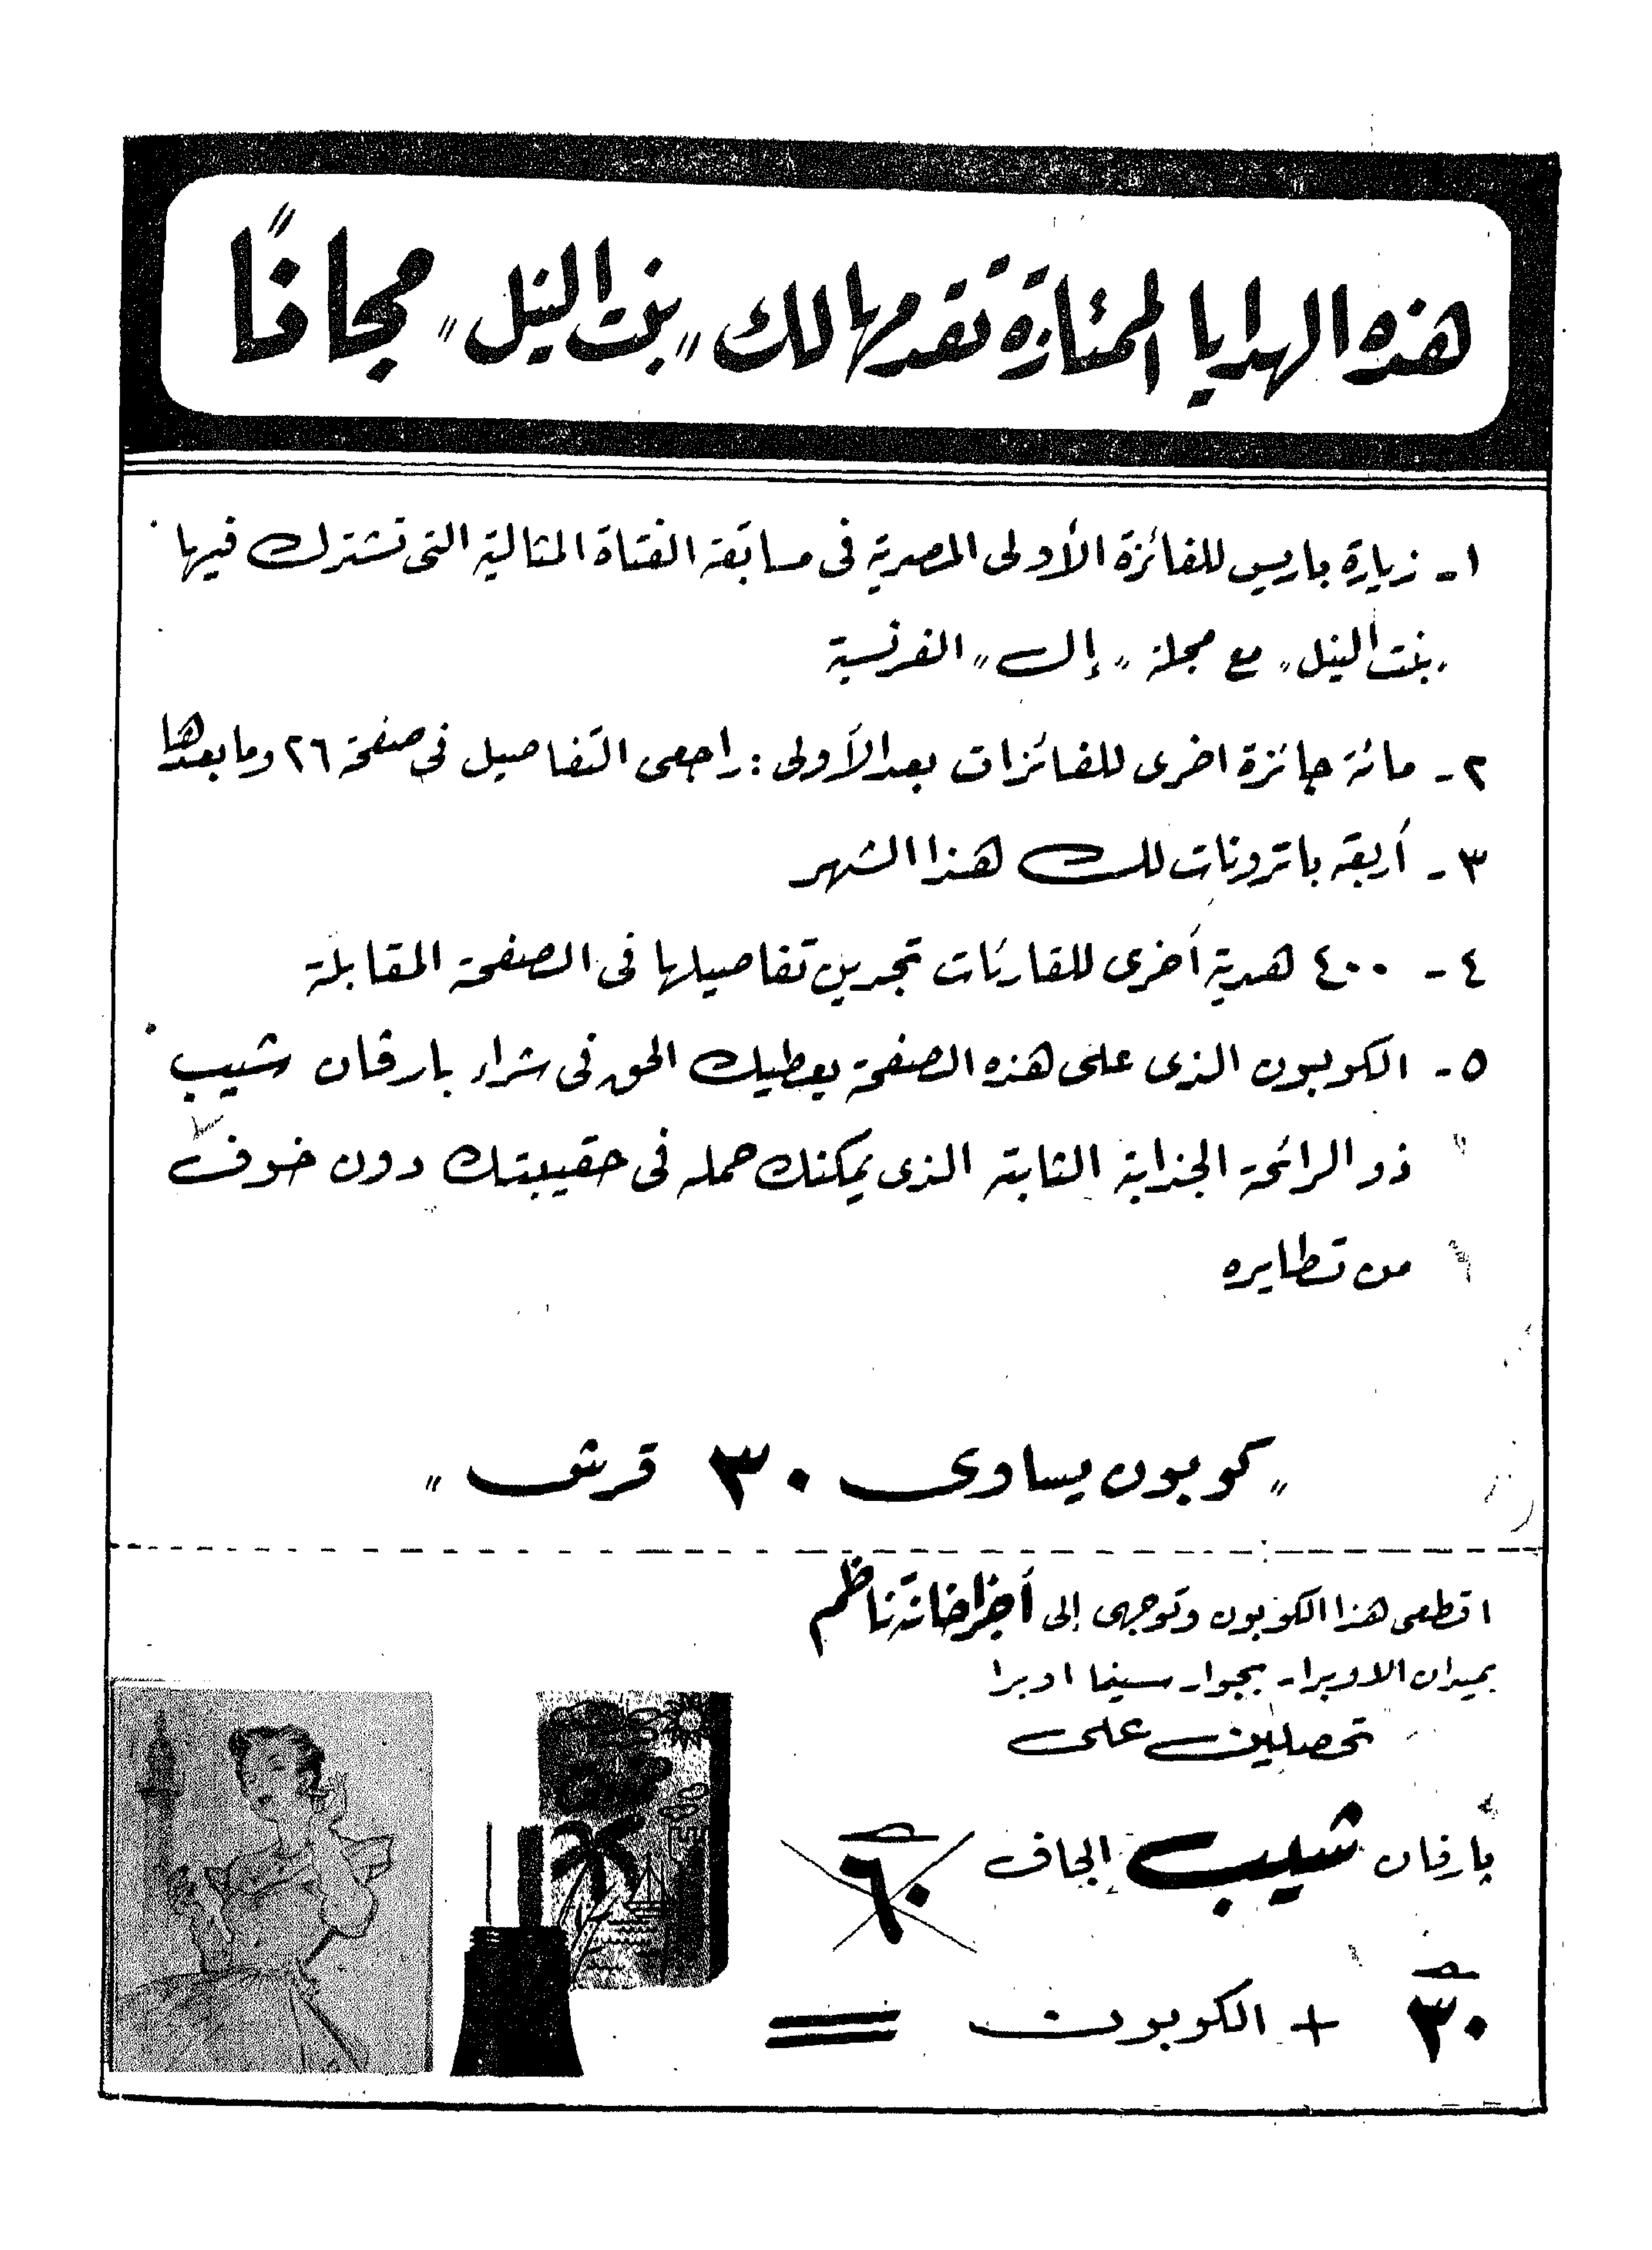 هذه الهدايا الممتازة تقدمها لك "بنت النيل" مجانًا
١- زيارة باريس للفائزة الأولى المصرية فى مسابقة الفتاة المثالية التى تشترك فيها
"بنت النيل" مع مجلة "إل" الفرنسية
٢- مائة جائزة اخرى للفائزات بعد الأولى : راجعى التفاصيل فى صفحة ٢٦ وما بعدها
٣- أربعة باترونات لك هذا الشهر
٤- ٤٠٠ هدية أخرى للقارئات تجدين تفاصيلها فى الصفحة المقابلة
٥- الكوبون الذى على هذه الصفحة يعطيك الحق فى شراء بارفان شيب
ذو الرائحة الجذابة الثابتة الذى يمكنك حمله فى حقيبتك دون خوف
من تطايره
"كوبون يساوى ٣٠ قرش"
اقطعى هذا الكوبون وتوجهى إلى أجزاخانة ناظم
بميدان الاوبرا - بجوار سينما اوبرا
تحصلين على
بارفان شيب الجاف ٦٠
٣٠ + الكوبون =